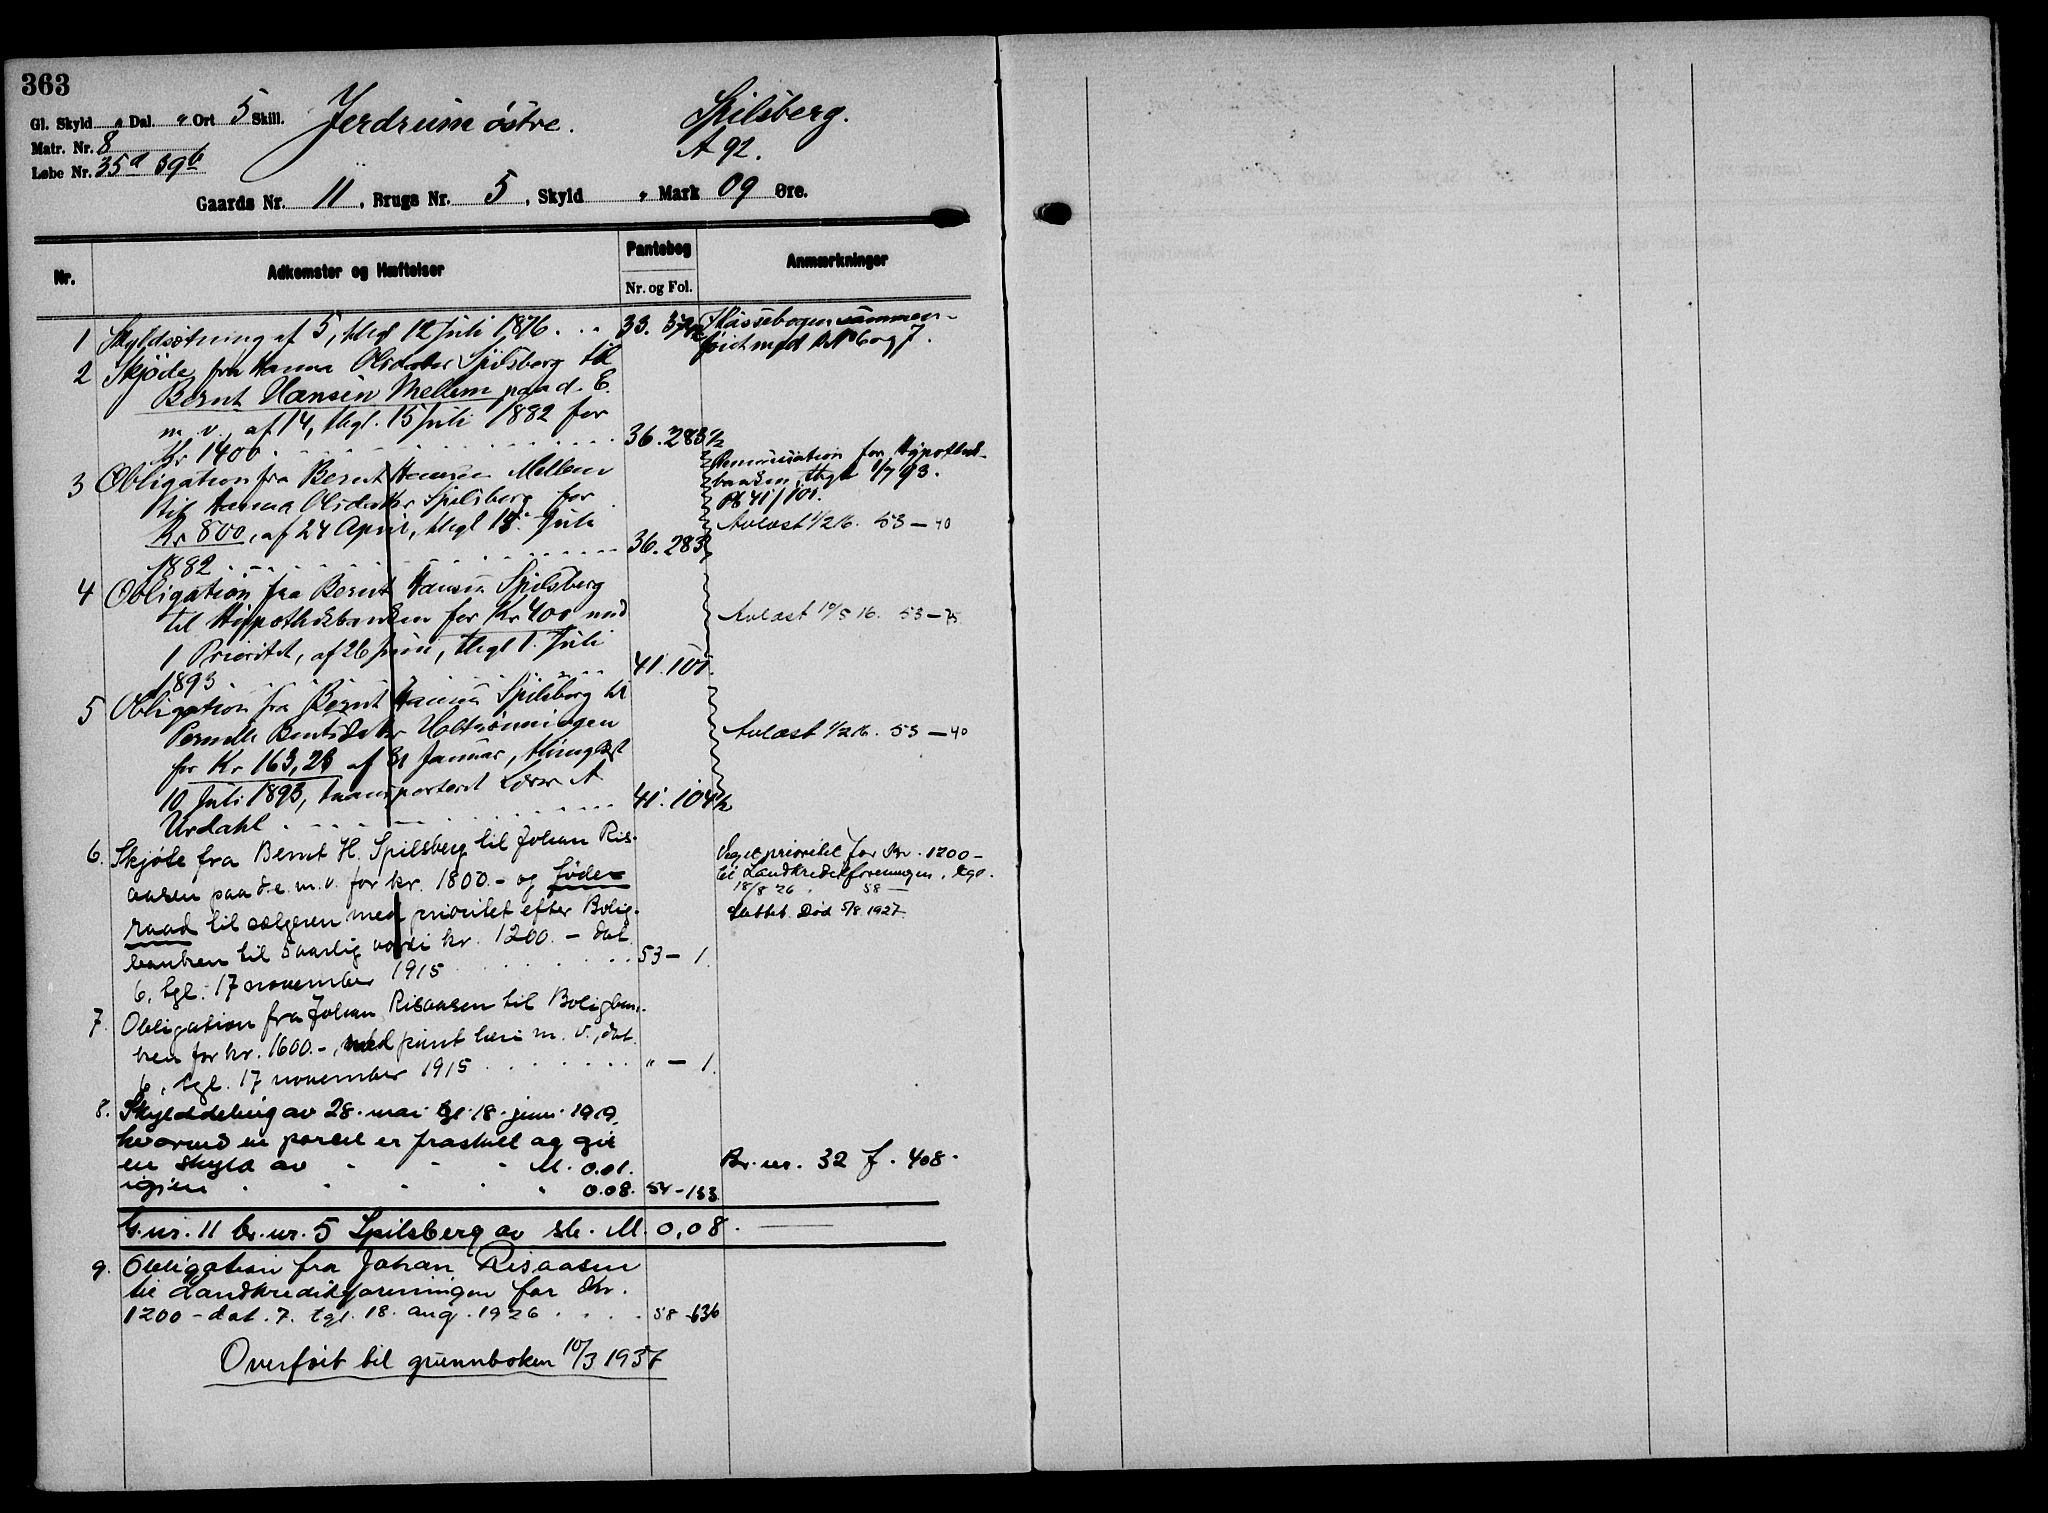 363
Gl. Skyld " Dal. " Ort 5 Skill.
Matr. Nr. 8
Løbe Nr. 35a 39b
Jerdrum østre.
Spilsberg.
A 92.
Gaards Nr. 11, Brugs Nr. 5, Skyld " Mark 09 Øre.
Nr.
Adkomster og Hæftelser
Pantebog
Nr. og Fol.
Anmærkninger
1 Skyldsætning af 5, thgl 12 Juli 1876. . . 33.
2 Skjøde fra Hanna Olsdatter Spilsberg til
Bernt Hansen Mellem paa d. E.
m. v., af 14, thgl. 15 Juli 1882 for
Kr 1400 . . . 36. 283½
3 Obligation fra Bernt Hansen Mellem
til Hanna Olsdatter Spilsberg for
Kr 800, af 24 April, thgl 15 Juli
1882 . . . 36. 283
Renunciation for Hypothek-
banken, thgl 1/7 93.
Pb 41/101.
Avlæst 1/2 16. 53 — 40
4 Obligation fra Bernt Hansen Spilsberg
til Hypothekbanken for Kr 400 med
1 Prioritet, af 26 Juni, thgl 1. Juli
1893 . . . 41. 101.
Avlæst 10/5 16. 53 — 75
5 Obligation fra Bernt Hansen Spilsberg til
Pernille Berntsdatter
for Kr 163,23 af 31 Januar, thinglæst
10 Juli 1893, transporteret A
Urdahl . . . 41. 104½
Avlæst 1/2 16. 53 — 40
6. Skjøte fra Bernt H. Spilsberg til Johan Ris-
aasen paa d. e. m. v. for kr. 1800.- og føde-
raad til sælgeren med prioritet efter Bolig-
banken til 5 aarlig værdi kr. 1200. - dat.
6, tgl. 17 november 1915 . . . 53 — 1.
Veget prioritet for Kr. 1200 -
til Landkreditforeningen, tgl.
18/8 26 58 —
Slettet. Død 5/8 1927.
7. Obligation fra Johan Risaasen til Boligban-
ken for kr. 1600.-, med pant heri m. v., dat.
6, tgl. 17 november 1915 . . . " — 1.
8. Skylddeling av 28. mai tgl 18. juni 1919,
hvorved en parcel er fraskilt og git
en skyld av " " " M. 0.01.
igjen " " " " 0.08. 54 - 133
Br. nr. 32 f. 408.
G. nr. 11 br. nr. 5 Spilsberg av sk. M. 0,08.
9. Obligation fra Johan Risaasen
til Landkreditforeningen for Kr.
1200 - dat. 7. tgl. 18. aug. 1926 . . . . 58 - 636
Overført til grunnboken 10/3 1937